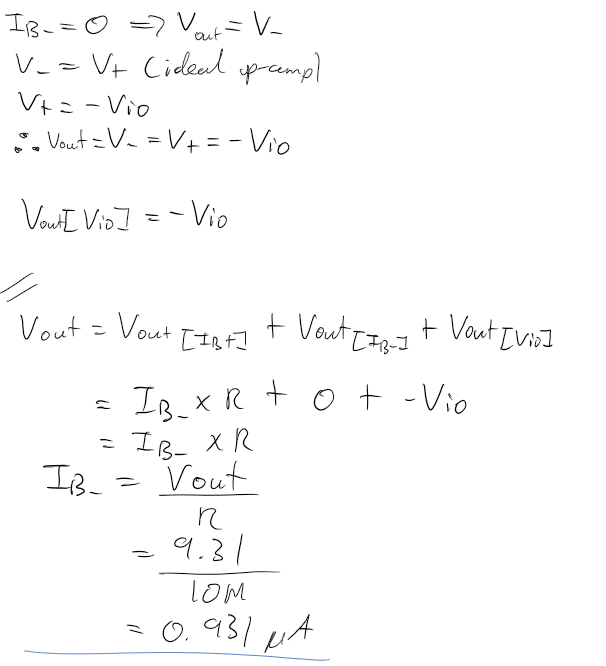 I_B- = 0 => V_out = V_-
V_- = V_+ (ideal op-amp)
V_+ = -V_io
∴ V_out = V_- = V_+ = -V_io
V_out[V_io] = -V_io
//
V_out = V_out[I_B+] + V_out[I_B-] + V_out[V_io]
= I_B- × R + 0 + -V_io
= I_B- × R
I_B- = V_out / R
= 9.31 / 10M
= 0.931 μA